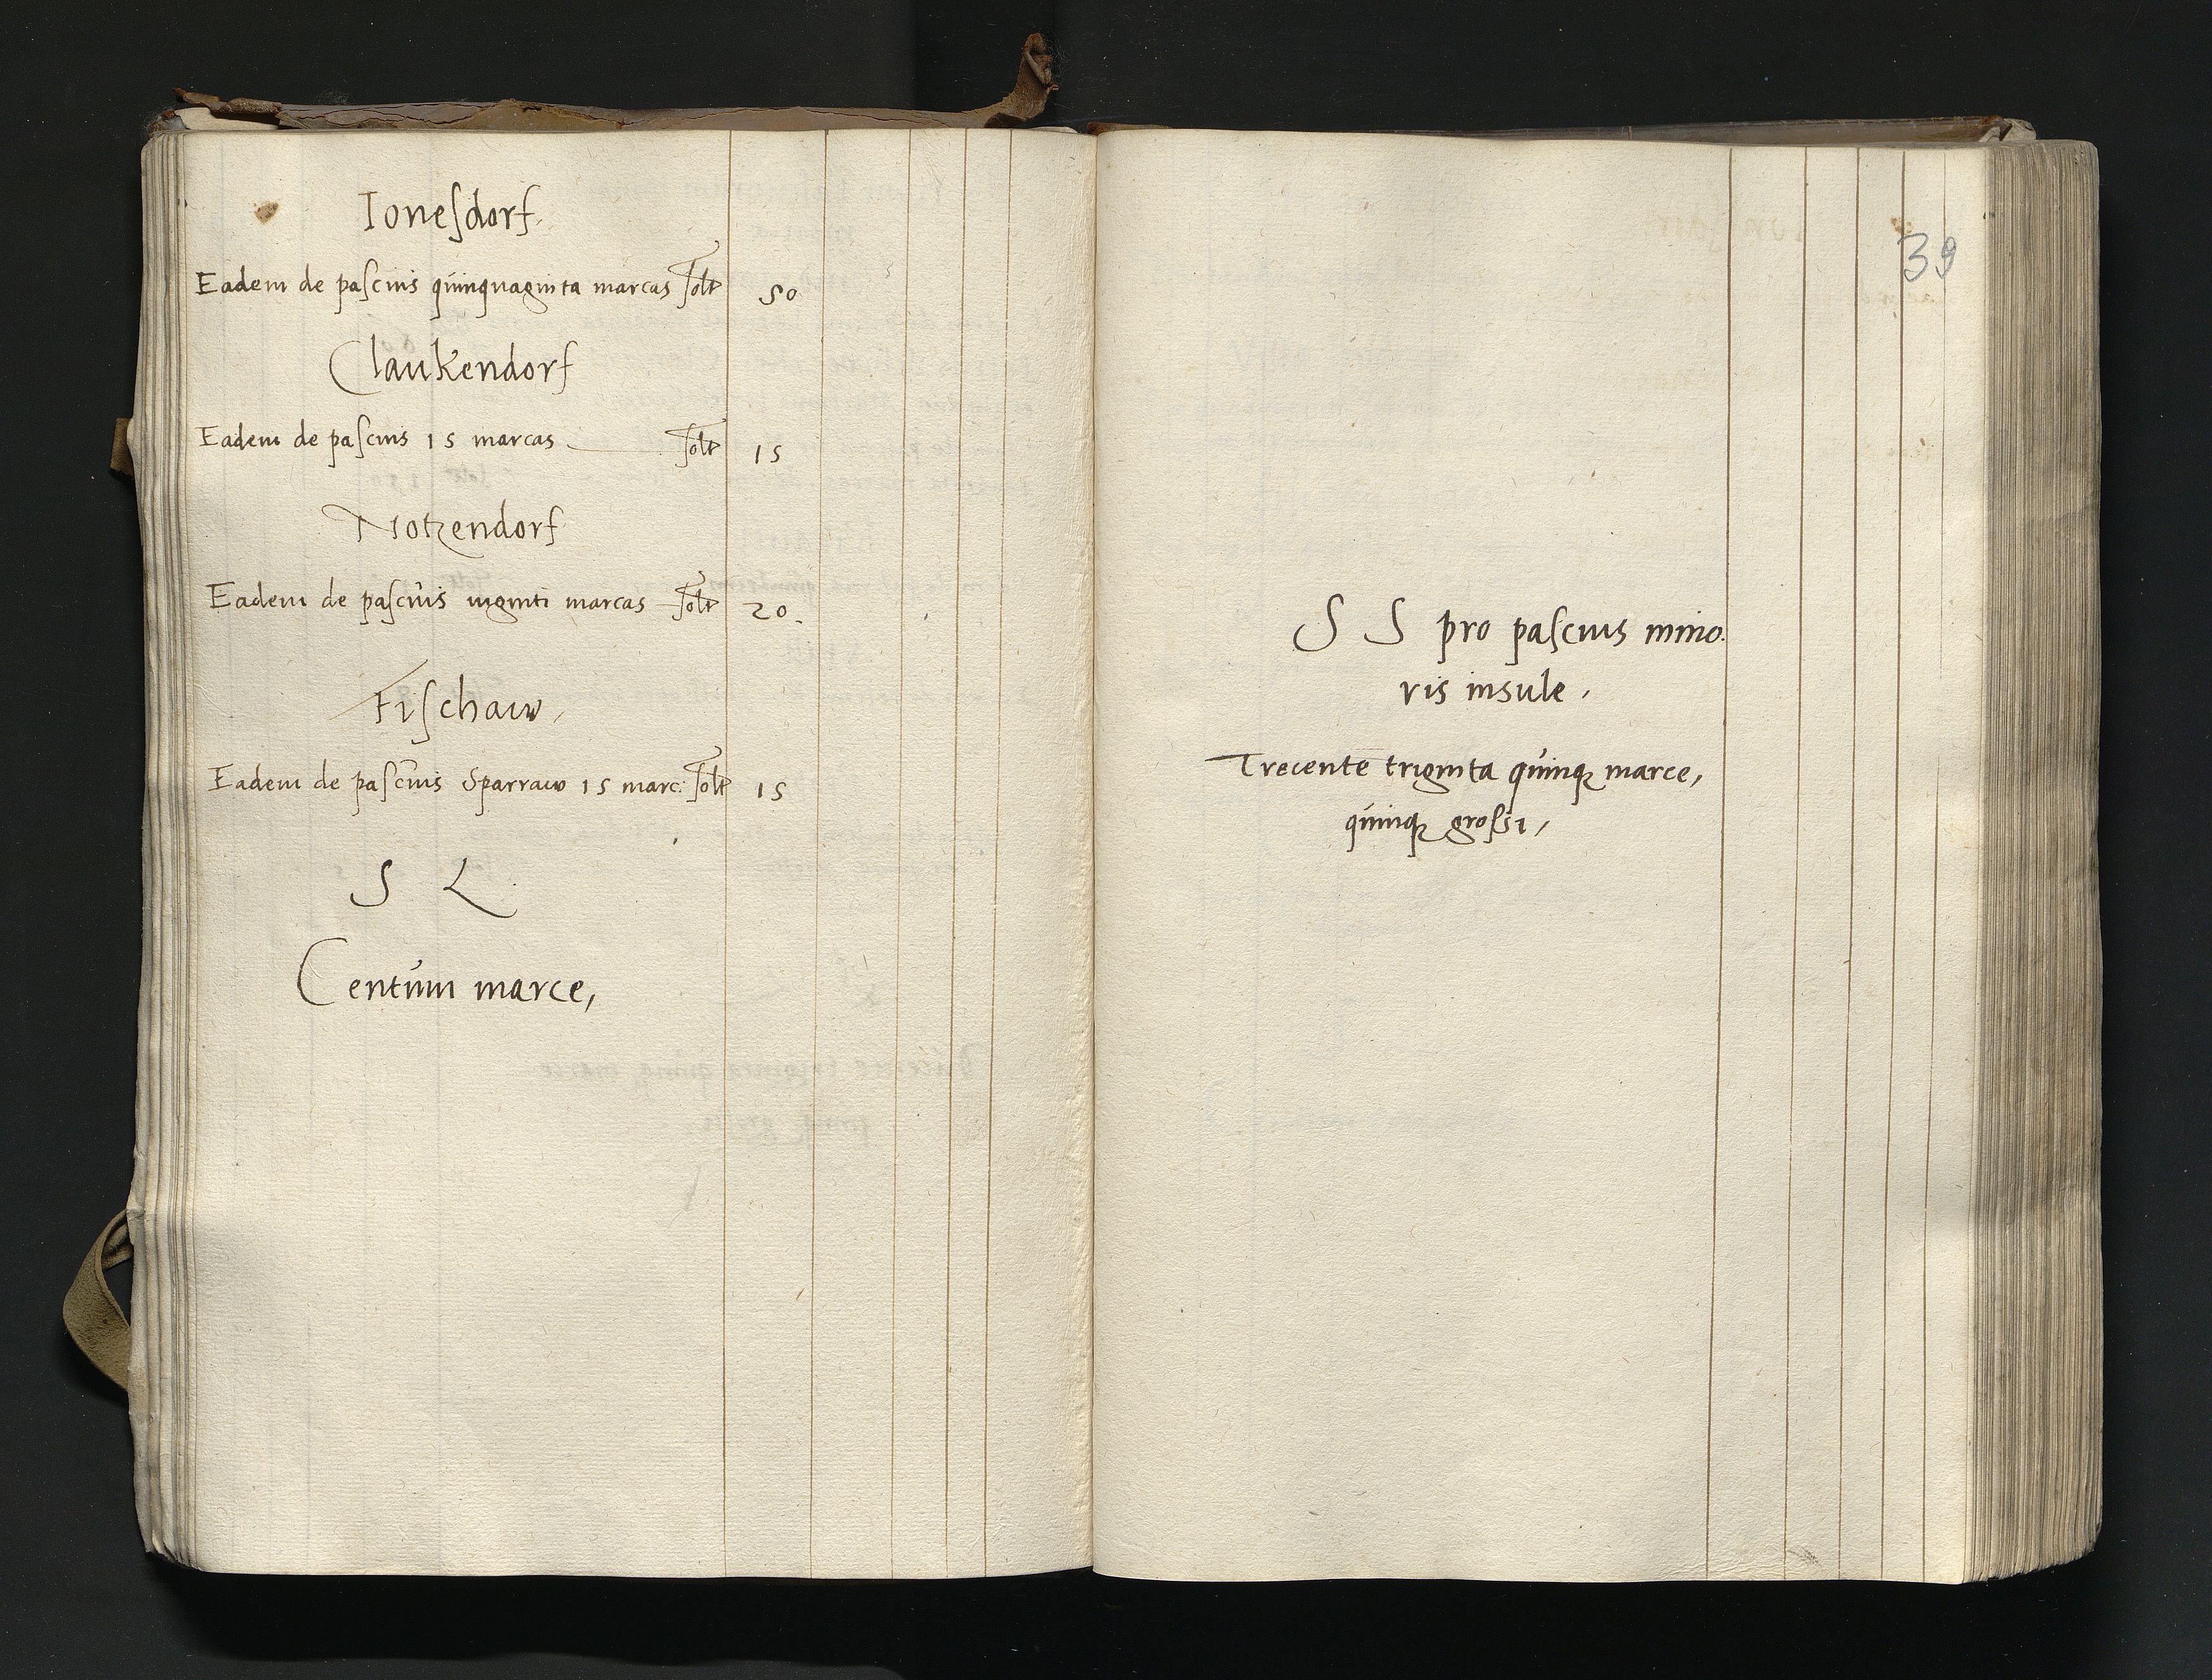 Ionesdorf.
Eadem de pascuis quinquaginta marcas solt 50
Claukendorf
Eadem de pascuis 15 marcas solt 15
Notzendorf
Eadem de pascuis viginti marcas solt 20.
Fischaw,
Eadem de pascuis Sparraw 15 marc: solt 15
S L.
Centum marce,
39
S S pro pascuis mino.
ris insule,
Trecente triginta quinq marce,
quinq grossi,